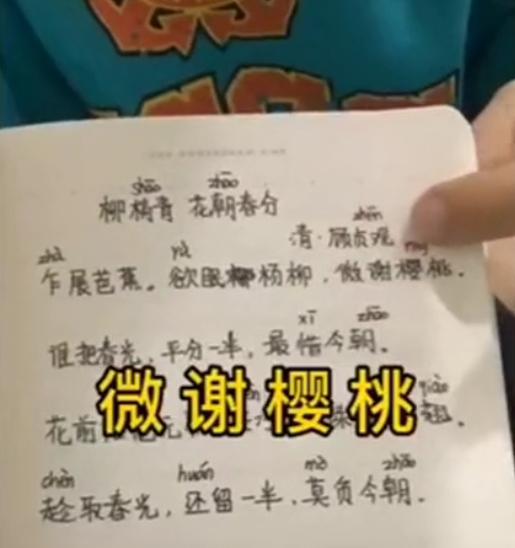 shāo zhāo
柳梢青 花朝春分
zhēn
清·顾贞观
zhà
乍展芭蕉。欲眠杨柳,微谢樱桃。
xī zhāo
谁把春光,平分一半,最惜今朝。
花前
翘。
qiào
微谢樱桃
chèn huán mò zhāo
趁取春光,还留一半,莫负今朝。